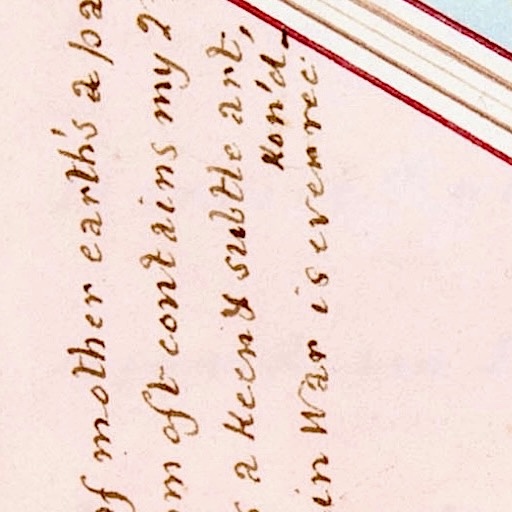 of mother earth's a pa
m oft contains my 2
s a keen & subtle art,
kon'd
in War is ever rec